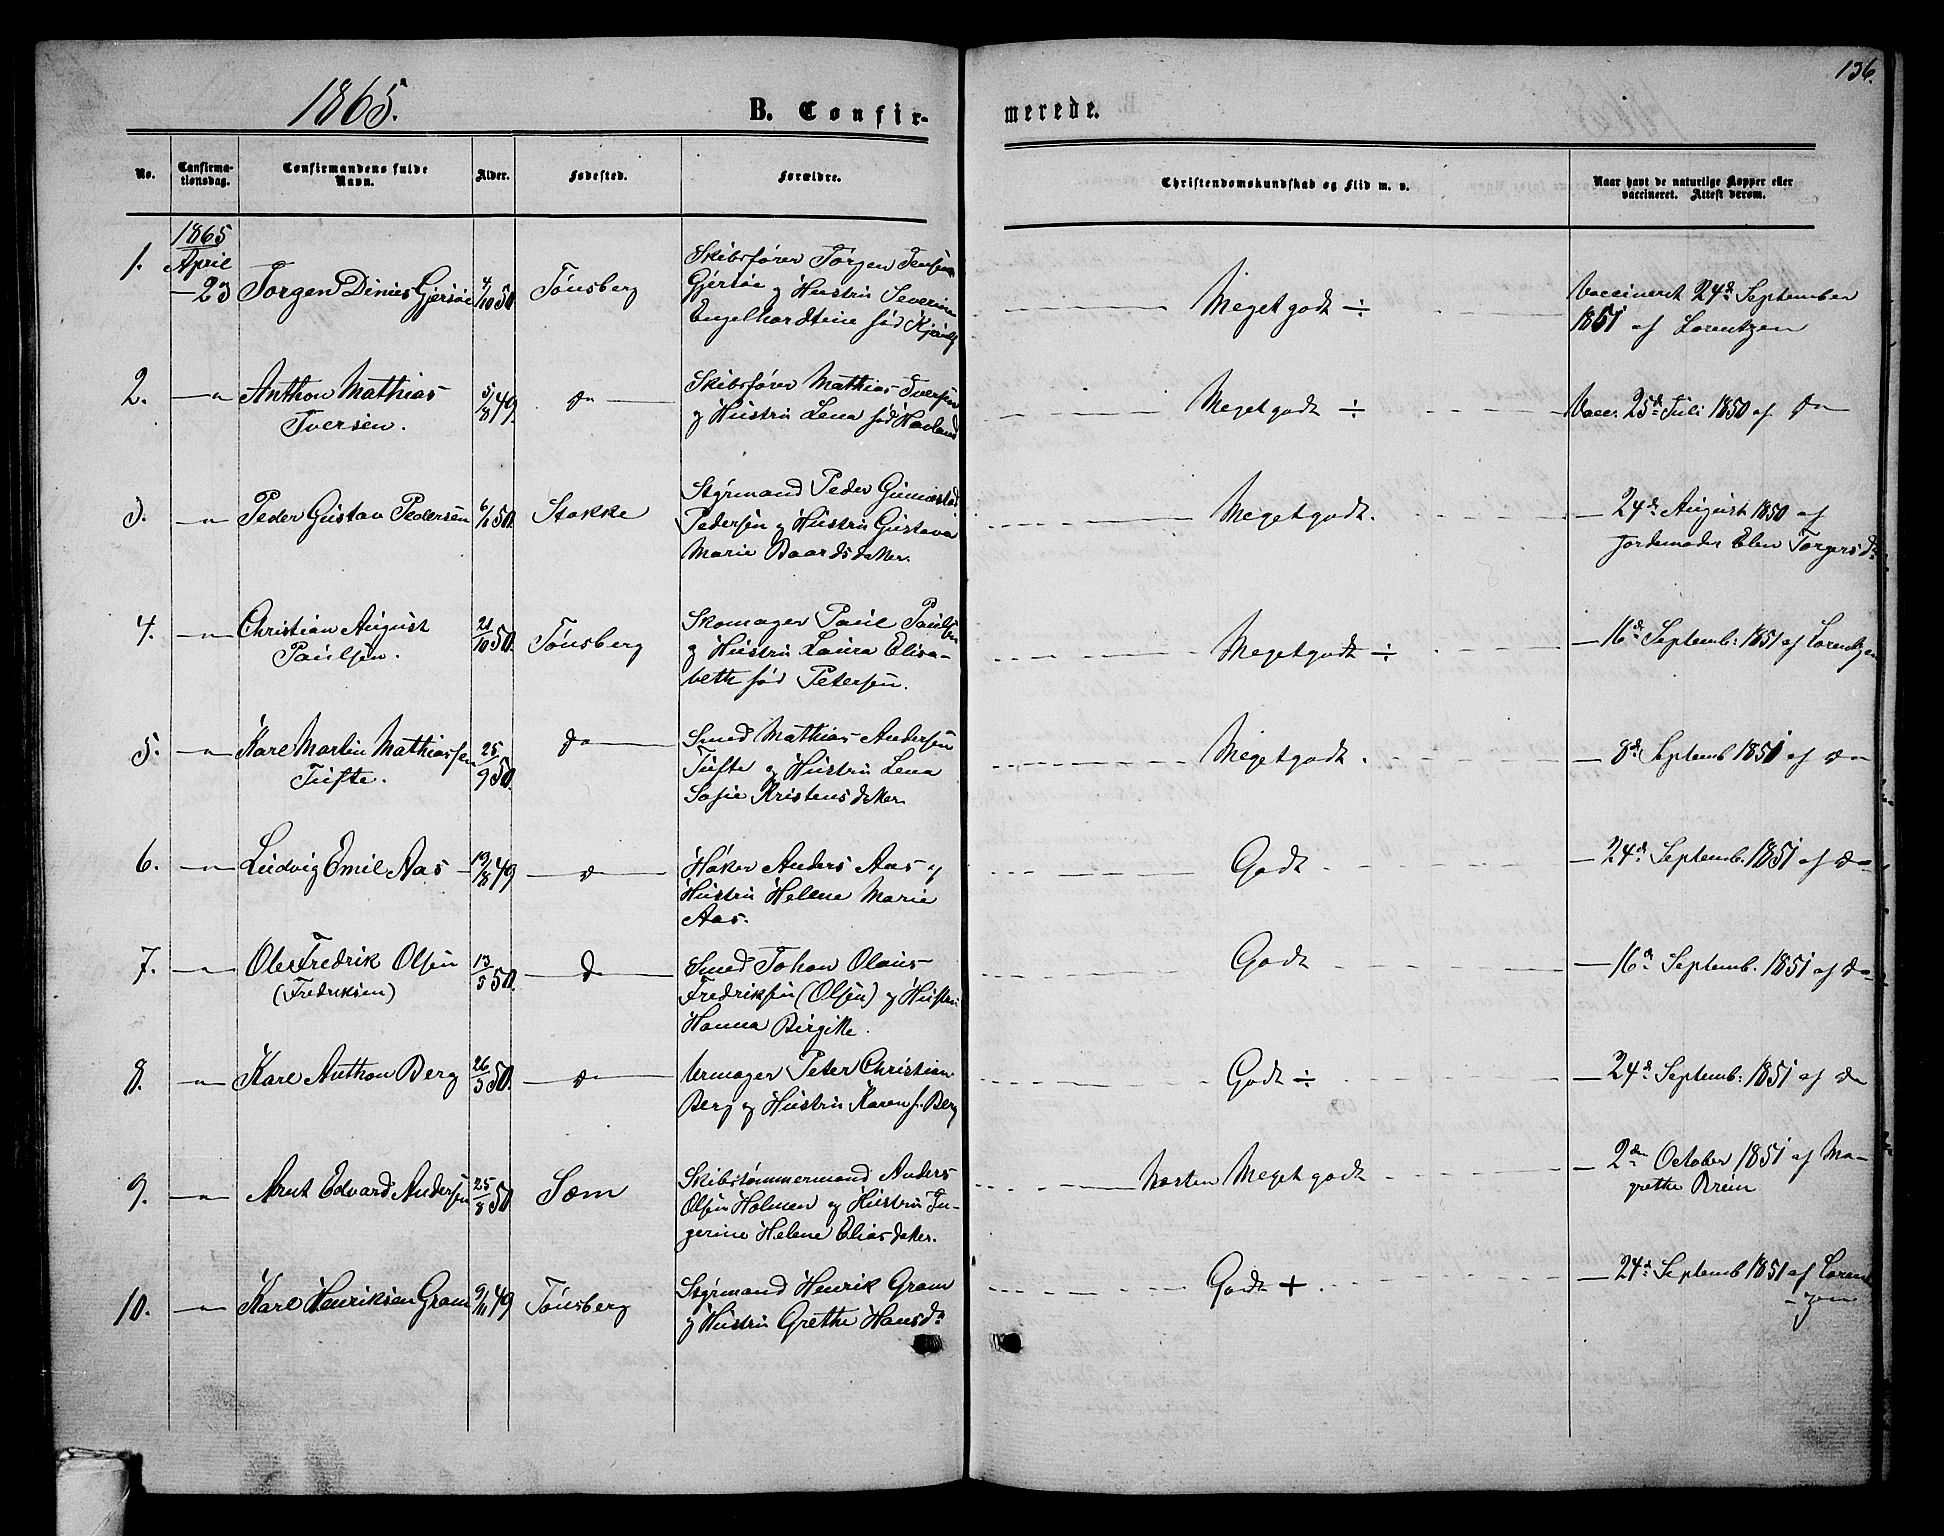 136.
1865.
B. Confir-
merede.
No.
Confirma-
tionsdag.
Confirmandens fulde
Navn.
Alder.
Fødested.
Forældre.
Christendomskundskab og Flid m. v.
Naar havt de naturlige Kopper eller
vaccineret. Attest derom.
1865
April
1. — 23 Jørgen Dinius Gjersøe 4/10 50. Tønsberg
Skibsfører Jørgen Jensen
Gjersøe og Hustru Severine
Engelhardtine fød
Meget godt ÷
Vaccineret 24de September
1851 af Lorentzen
2. — " Anthon Mathias
Iversen.
5/8 49. do
Skibsfører Mathias Iversen
og Hustru Lena fød Havland
Meget godt ÷
Vacc. 25de Juli 1850 af do
3. — " Peder Gustav Pedersen 6/1 50. Stokke
Styrmand Peder
Pedersen og Hustru Gustava
Marie Baardsdatter.
Meget godt.
— 24de August 1850 af
Jordemoder Elen Torgersdr
4. — " Christian August
Paulsen.
21/10 50. Tønsberg
Skomager Paul Paulsen
og Hustru Laura Elisa-
beth fød Petersen.
Meget godt ÷
— 16de Septemb: 1851 af Lorentzen
5. — " Karl Martin Mathiassen
Tufte.
25/9 50. do
Smed Mathias Andersen
Tufte og Hustru Lena
Sofie Kristensdatter
Meget godt.
— 8de Septemb 1851 af do
6. — " Ludvig Emil Aas 13/8 49 — do
Høker Anders Aas og
Hustru Helene Marie
Aas.
Godt.
— 24de Septemb. 1851 af do
7. — " Ole Fredrik Olsen
(Fredriksen)
13/5 50. — do
Smed Johan Olaus
Fredriksen (Olsen) og Hustru
Hanna Birgitte.
Godt
— 16de Septemb. 1851 af do
8. — " Karl Anthon Berg 26/3 50. — do
Urmager Peter Christian
Berg og Hustru Karen f. Berg
Godt ÷
— 24de Septemb: 1851 af do
9. — " Arnt Edvard Andersen 25/8 50. Sæm
Skibstømmermand Anders
Olsen Holmen og Hustru In-
gerine Helene Eliasdatter.
Næsten Meget godt
— 2den October 1851 af Ma-
grethe Bruun
10. — " Karl Henriksen Gram 9/11 49 Tønsberg
Styrmand Henrik Gram
og Hustru Grethe Hansdr
Godt +
— 24de Septemb 1851 af Lorent-
zen